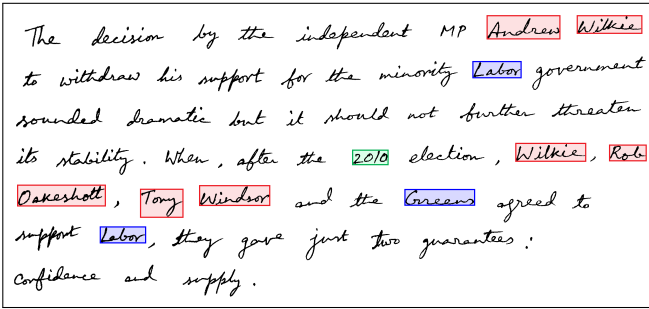 The decision by the independent MP Andrew Wilkie
to withdraw his support for the minority Labor government
sounded dramatic but it should not further threaten
its stability. When, after the 2010 election, Wilkie, Rob
Oakeshott, Tony Windsor and the Greens agreed to
support Labor, they gave just two guarantees:
confidence and supply.